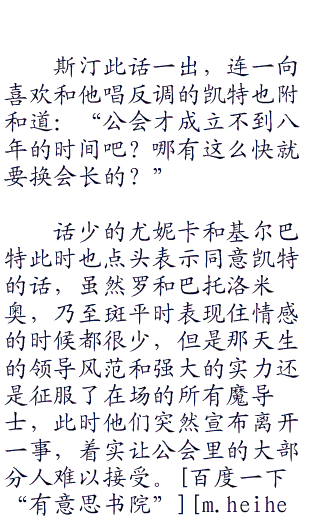 斯汀此话一出，连一向
喜欢和他唱反调的凯特也附
和道：“公会才成立不到八
年的时间吧？哪有这么快就
要换会长的？”
话少的尤妮卡和基尔巴
特此时也点头表示同意凯特
的话，虽然罗和巴托洛米
奥，乃至斑平时表现住情感
的时候都很少，但是那天生
的领导风范和强大的实力还
是征服了在场的所有魔导
士，此时他们突然宣布离开
一事，着实让公会里的大部
分人难以接受。[百度一下
“有意思书院”][m.heihe